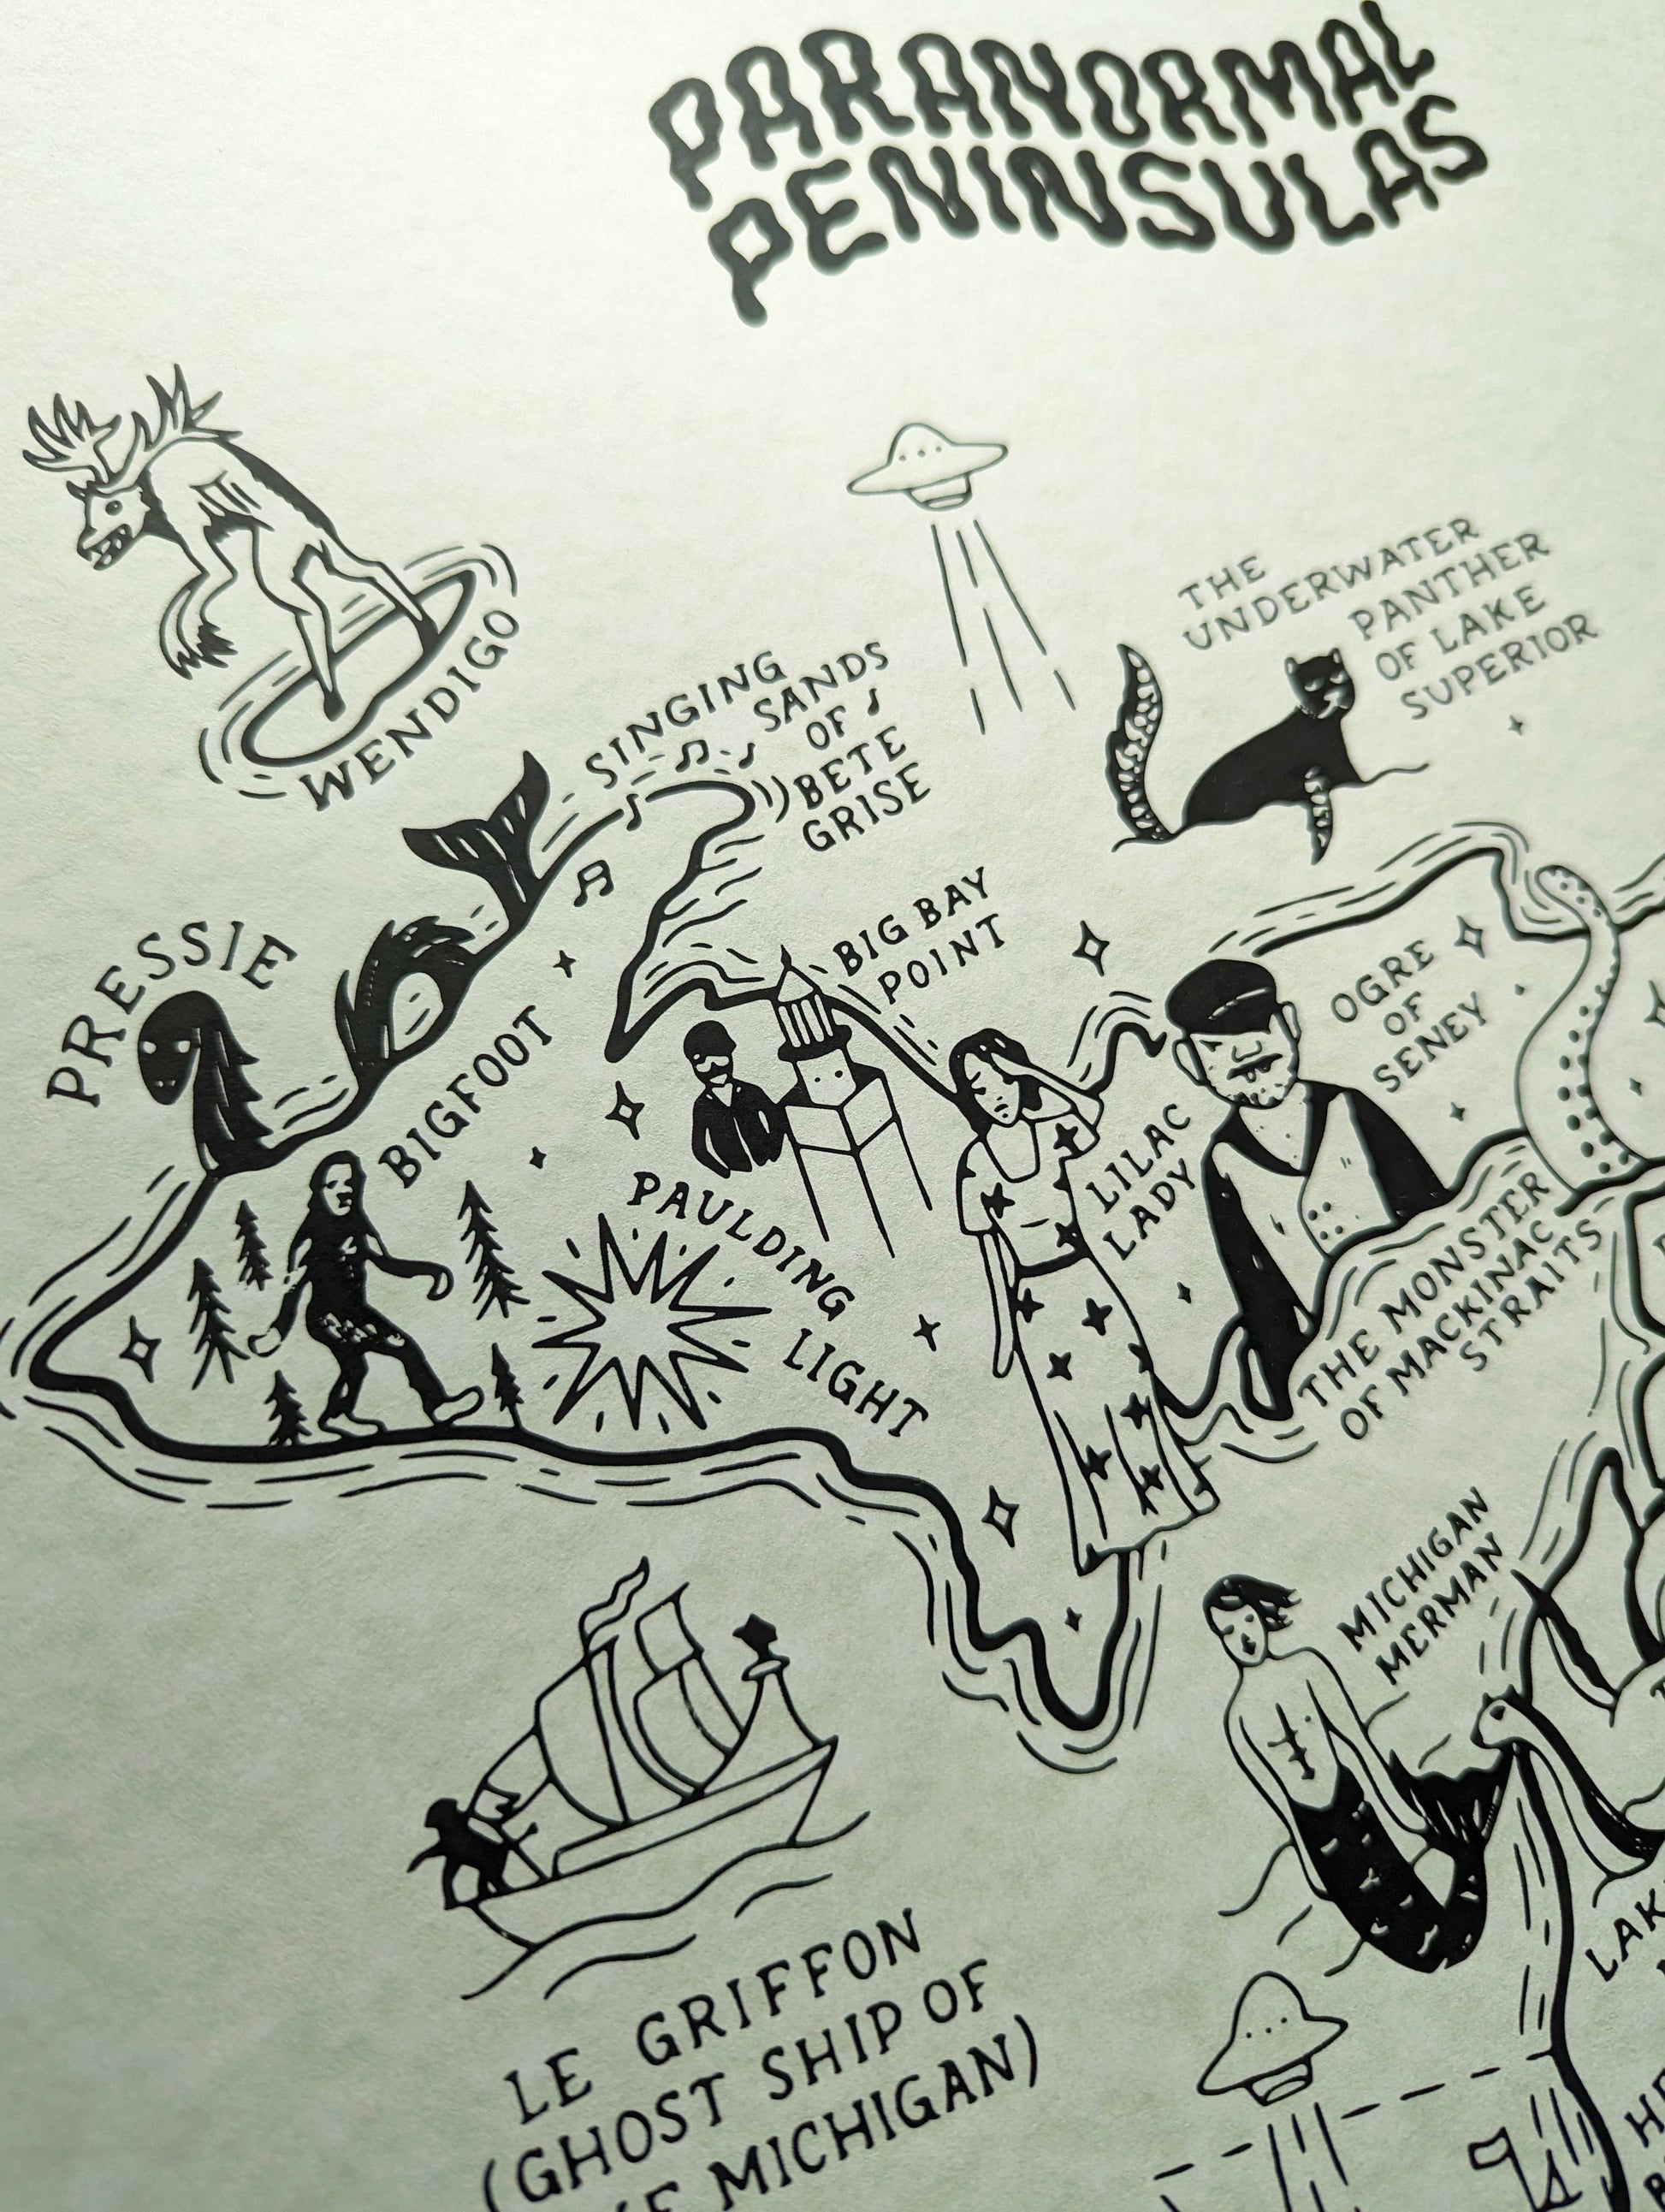 PARANORMAL
PENINSULAS
WENDIGO
SINGING
SANDS
OF
BETE
GRISE
THE
UNDERWATER
PANTHER
OF LAKE
SUPERIOR
PRESSIE
BIGFOOT
BIG BAY
POINT
OGRE
OF
SENEY
PAULDING
LIGHT
LILAC
LADY
THE MONSTER
OF MACKINAC
STRAITS
MICHIGAN
MERMAN
LE GRIFFON
(GHOST SHIP OF
MICHIGAN)